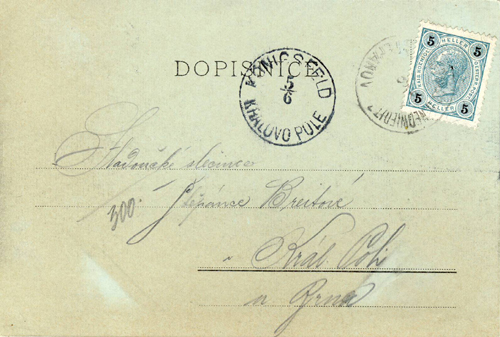 DOPISNICE
KÖNIGSFELD
5/6
KRÁLOVO POLE
5 HELLER 5
5 5
300.-
slečince
Štěpánce Breitové
v Král. Poli
u Brna